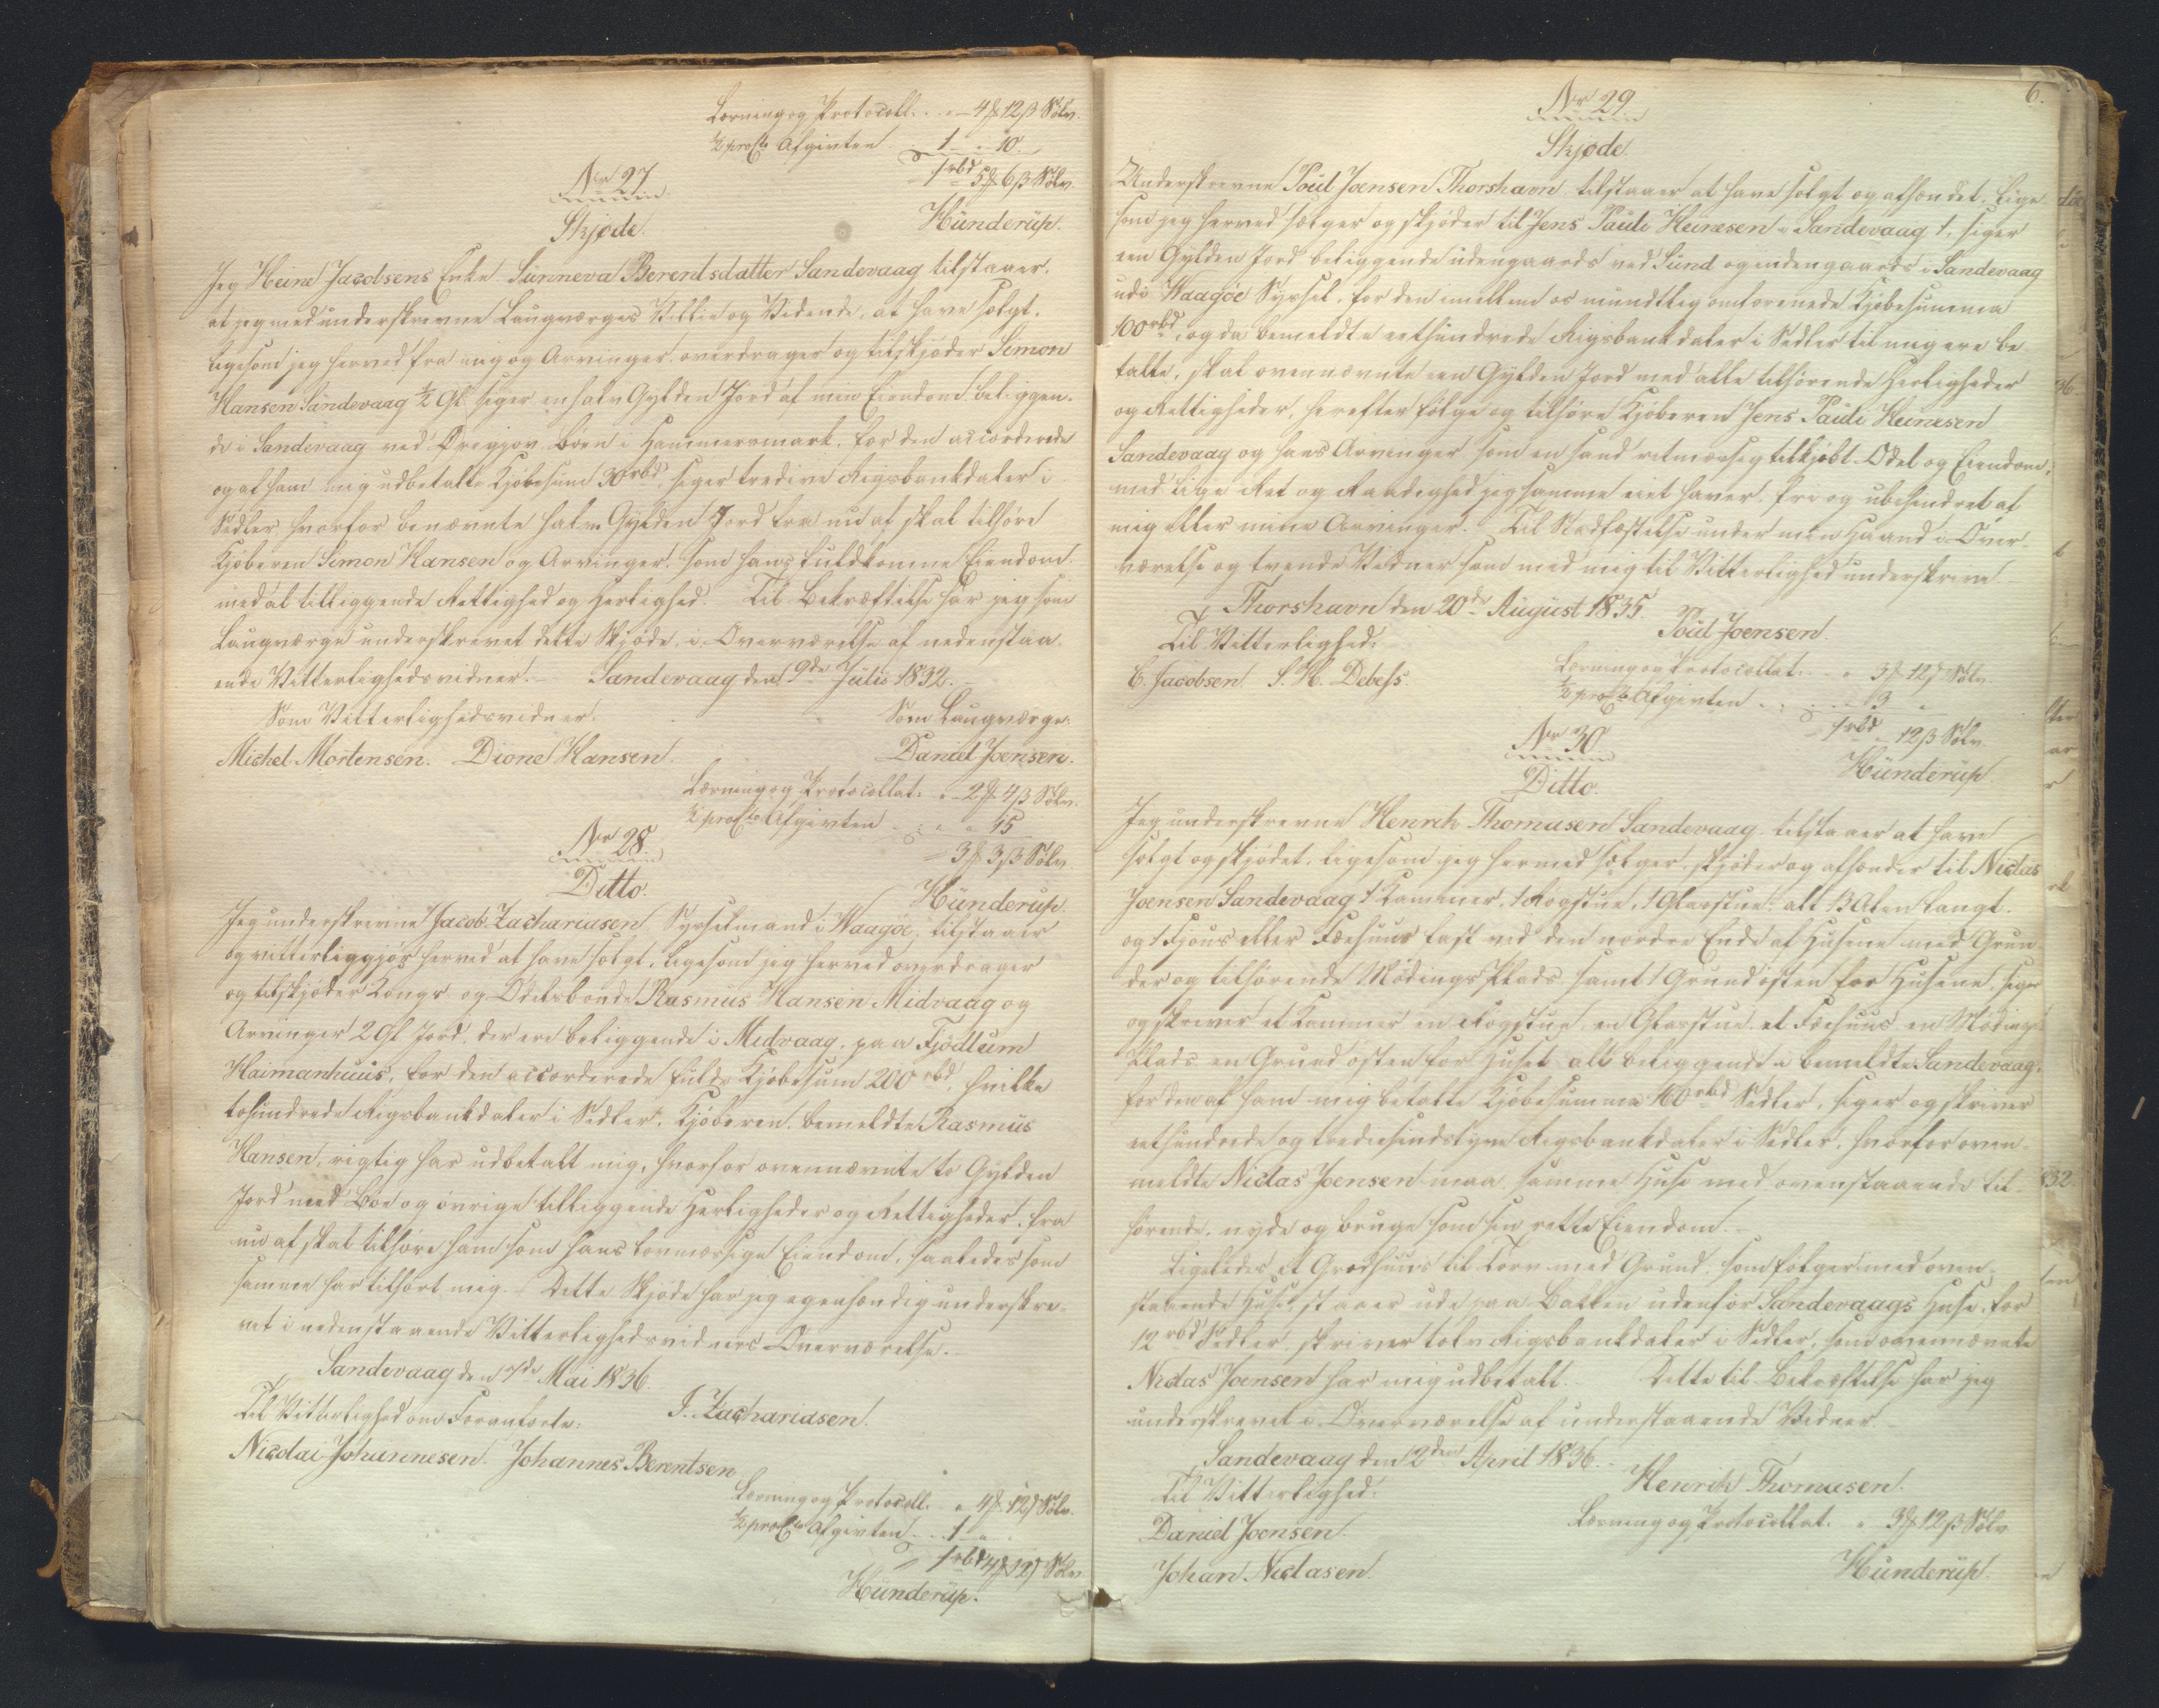 Læsning og Protocoll: " 4 ℔ 12 β Sölv.
½ proCto Afgivten 1 " 10
1 rbd 5 ℔ 6 β Sölv.
Hünderüp.
No 27
Skjøde.
Jeg Heine Jacobsens Enke Sünneva Berentsdatter Sandevaag tilstaaer,
at jeg med underskrevne Laugværges Villie og Vidende, at have solgt,
ligesom jeg herved fra mig og Arvinger overdrager og tilskjøder Simon
Hansen Sandevaag ½ Gl. siger en halv Gylden Jord af min Eiendom beliggen-
de i Sandevaag ved Böen i Hammersmark, for den accorderede
og af ham mig udbetalte Kjøbesum 30 rbd, siger tredive Rigsbankdaler i
Sedler, hvorfor benævnte halve Gylden Jord fra nu af skal tilhøre
Kjøberen Simon Hansen og Arvinger, som hans fuldkomne Eiendom
med al tilliggende Rettighed og Herlighed. Til Bekræftelse har jeg som
Laugværge underskrevet dette Skjøde i Overværelse af nedenstaa-
ende Vitterlighedsvidner. – Sandevaag den 9de Julii 1832. –
Som Vitterlighedsvidner: Som Laugværge:
Michel Mortensen. Dione Hansen. Daniel Joensen.
Læsning og Protocollat: " 2 ℔ 4 β Sölv.
½ proCto Afgivten " " 15
3 ℔ 3 β Sölv
Hünderüp.
No 28
Ditto.
Jeg underskrevne Jacob Zachariasen, Sysselmand i Waagöe, tilstaaer
og vitterliggjør herved at have solgt, ligesom jeg herved overdrager
og tilskjøder Konge- og Odelsbonde Rasmüs Hansen Midvaag og
Arvinger 2 Gl Jord, der ere beliggende i Midvaag, paa Fjødlum
Haimanhuus, for den accorderede fulde Kjøbesum 200 rbd, hvilke
tohundrede Rigsbankdaler i Sedler, Kjøberen, bemeldte Rasmüs
Hansen, rigtig har udbetalt mig, hvorfor ovennævnte to Gylden
Jord med Böe og øvrige tilliggende Herligheder og Rettigheder, fra
nu af skal tilhøre ham som hans lovmæssige Eiendom, saaledes som
samme har tilhört mig. – Dette Skjøde har jeg egenhændig underskre-
vet i nedenstaaende Vitterlighedsvidners Overværelse. –
Sandevaag den 7de Mai 1836.
Til Vitterlighed om Foranførte: J. Zachariasen.
Nicolai Johannesen. Johannes Berentsen
Læsning og Protocoll: " 4 ℔ 12 β Sölv.
½ proCto Afgivten 1 "
1 rbd 4 ℔ 12 β Sölv
Hünderüp.
6.
No 29
Skjøde.
Underskrevne Poül Joensen Thorshavn tilstaaer at have solgt og afhændet, lige
som jeg herved sælger og skjøder til Jens Pauli Heinesen i Sandevaag 1, siger
een Gylden Jord beliggende udengaards ved Sünd og indengaards i Sandevaag
udi Waagöe Syssel, for den imellem os mundtlig omforenede Kjøbesumma
100 rbd, og da bemeldte eethundrede Rigsbankdaler i Sedler til mig ere be-
talte, skal ovennævnte een Gylden Jord med alle tilhørende Herligheder
og Rettigheder, herefter følge og tilhøre Kjøberen Jens Pauli Heinesen
Sandevaag og hans Arvinger som en sand retmæssig tilkjøbt Odel og Eiendom,
med lige Ret og Raadighed jeg samme eiet haver, fri og ubehindret af
mig eller mine Arvinger. Til Stadfæstelse under min Haand i Over-
værelse og tvende Vidner som med mig til Vitterlighed underskrive
Thorshavn den 20de August 1835.
Til Vitterlighed: Poül Joensen.
C. Jacobsen. S. H. Debess.
Læsning og Protocollat: " 3 ℔ 12 β Sölv.
½ proCto Afgivten 3 "
1 rbd " 12 β Sölv
Hünderüp.
No 30.
Ditto.
Jeg underskrevne Henrik Thomasen Sandevaag tilstaaer at have
solgt og skjødet, ligesom jeg hermed sælger, skjøder og afhænder til Niclas
Joensen Sandevaag 1 Kammer, 1 Rögstue, 1 Glasstue, alt 13 Alen langt,
og 1 Fjøus eller Fæehuus fast ved den nordre Ende af Husene med Grun-
der og tilhørende MødingsPlads samt 1 Grund østen for Husene, siger
og skriver et Kammer en Rogstue, en Glasstue, et Fæehuus en Mödings
Plads en Grund østen for Huset alt beliggende i bemeldte Sandevaag,
for den af ham mig betalte Kjøbesumma 160 rbd Sedler, siger og skriver
eethundrede og tredsindstyve Rigsbankdaler i Sedler, hvorfor oven-
meldte Niclas Joensen maa samme Huse med ovenstaaende til-
hørende, nyde og bruge som sin rette Eiendom. –
Ligeledes et Grodhuus til Torv med Grund, som følger med oven-
staaende Huse, staaer ude paa Bakken udenfor Sandevaags Huse, for
12 rbd Sedler, skriver tolv Rigsbankdaler i Sedler, som ovennævnte
Niclas Joensen har mig udbetalt. Dette til Bekræftelse har jeg
underskrevet i Overværelse af understaaende Vidner. –
Sandevaag den 12den April 1836. –
Til Vitterlighed: Henrik Thomasen.
Daniel Joensen. Læsning og Protocollat. " 3 ℔ 12 β Sölv
Johan Niclasen. Hünderüp.